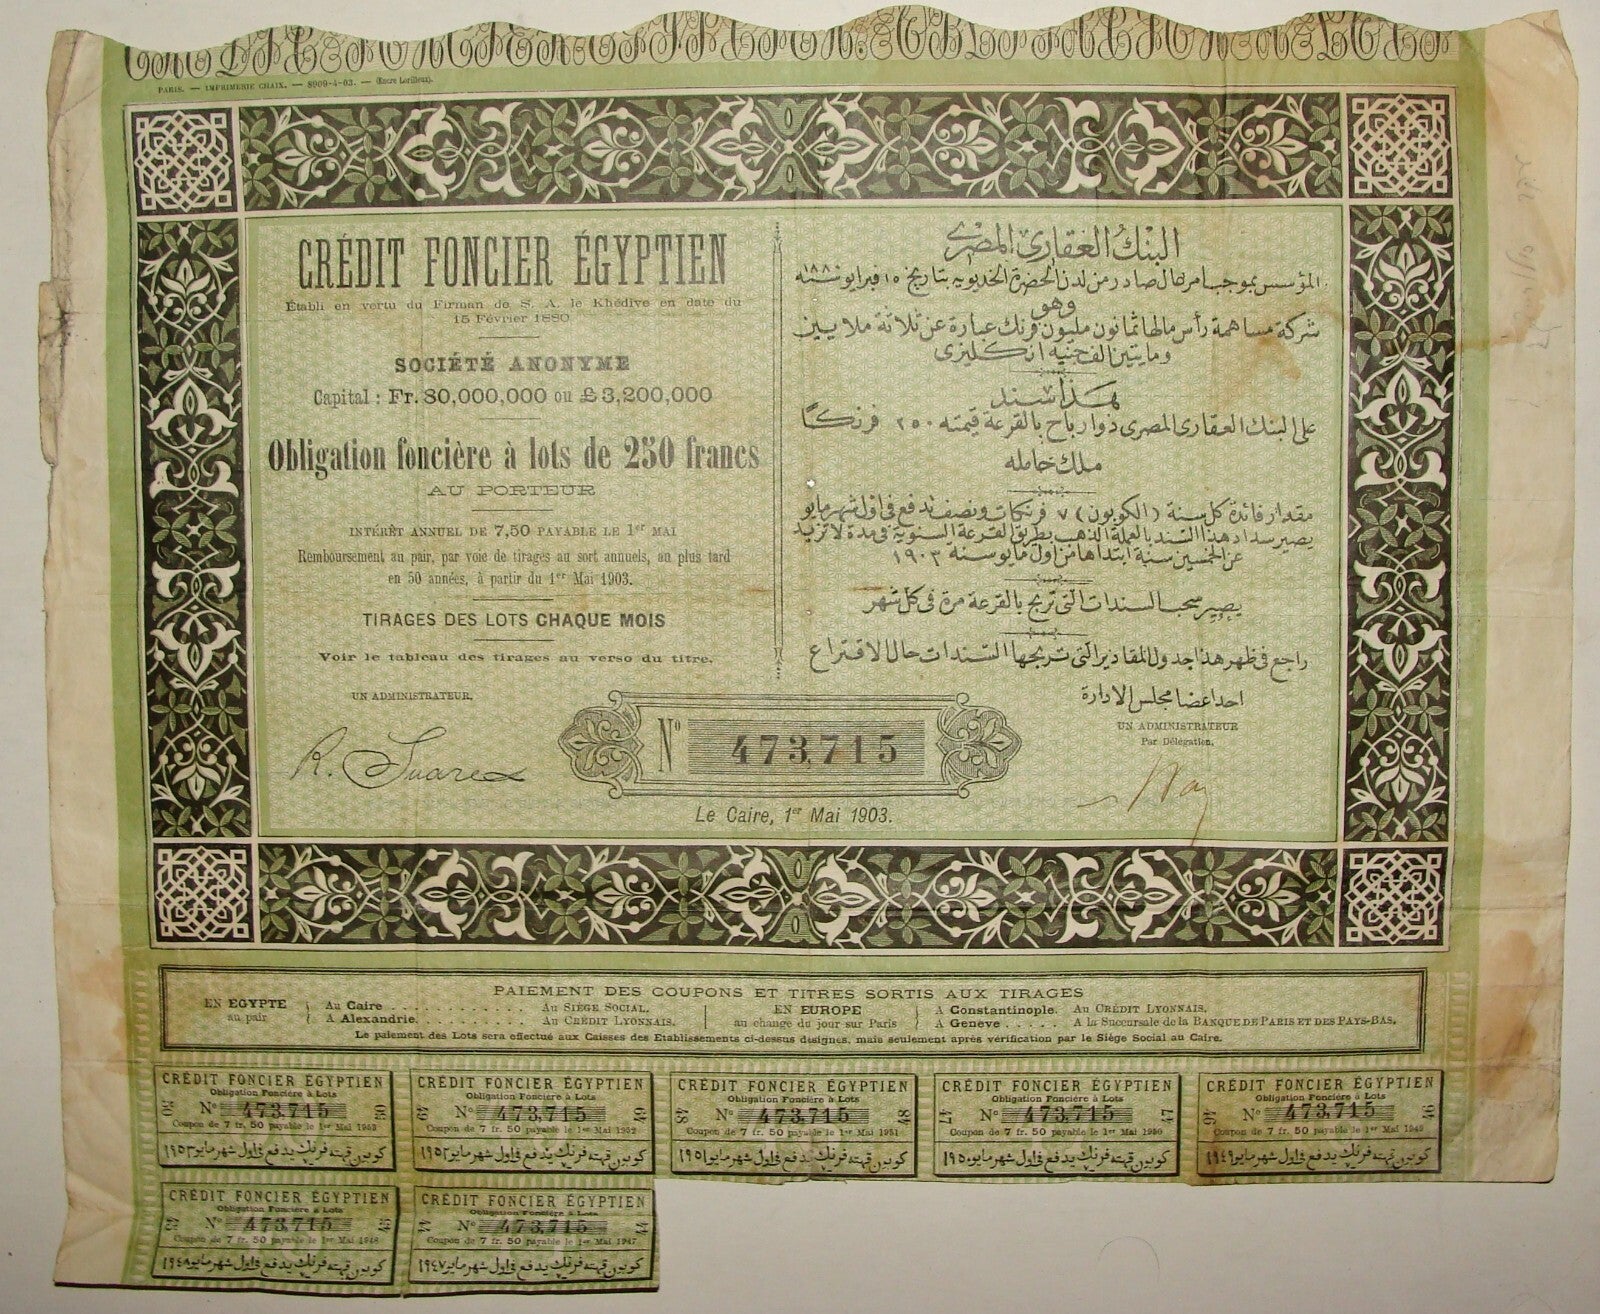 PARIS. — IMPRIMERIE CHAIX. — 8909-4-03. — (Encre Lorilleux).
CRÉDIT FONCIER ÉGYPTIEN
Établi en vertu du Firman de S. A. le Khédive en date du
15 Février 1880
SOCIÉTÉ ANONYME
Capital : Fr. 80,000,000 ou £ 3,200,000
Obligation foncière à lots de 250 francs
AU PORTEUR
INTÉRÊT ANNUEL DE 7,50 PAYABLE LE 1er MAI
Remboursement au pair, par voie de tirages au sort annuels, au plus tard
en 50 années, à partir du 1er Mai 1903.
TIRAGES DES LOTS CHAQUE MOIS
Voir le tableau des tirages au verso du titre.
UN ADMINISTRATEUR,
R. Suares
البنك العقاري المصري
المؤسس بموجب امر عال صادر من لدن الحضرة الخديويه بتاريخ ١٥ فبرايو سنة ١٨٨٠
وهو
شركة مساهمة رأس مالها ثمانون مليون فرنك عبارة عن ثلاثة ملايين
ومايتين الف جنيه انكليزى
هذا سند
على البنك العقارى المصرى ذو ارباح بالقرعة قيمته ٢٥٠ فرنكاً
ملك حامله
مقدار فائدة كل سنة (الكوبون) ٧ فرنكات ونصف تدفع فى اول شهر مايو
يصير سداد هذا السند بالعملة الذهب بطريق القرعة السنوية فى مدة لا تزيد
عن الخمسين سنة ابتداها من اول مايو سنة ١٩٠٣
يصير سحب السندات التى تربح بالقرعة مرة فى كل شهر
راجع فى ظهر هذا جدول المقادير التى تربحها السندات حال الاقتراع
احد اعضا مجلس الادارة
UN ADMINISTRATEUR
Par Délégation,
No 473,715
Le Caire, 1er Mai 1903.
PAIEMENT DES COUPONS ET TITRES SORTIS AUX TIRAGES
EN EGYPTE au pair
Au Caire . . . . . . . . . . Au SIÈGE SOCIAL.
A Alexandrie. . . . . . . . . Au CRÉDIT LYONNAIS.
EN EUROPE au change du jour sur Paris
A Constantinople. Au CRÉDIT LYONNAIS.
A Genève . . . . . A la Succursale de la BANQUE DE PARIS ET DES PAYS-BAS.
Le paiement des Lots sera effectué aux Caisses des Etablissements ci-dessus désignés, mais seulement après vérification par le Siège Social au Caire.
CRÉDIT FONCIER ÉGYPTIEN
Obligation Foncière à Lots
50 No 473,715 50
Coupon de 7 fr. 50 payable le 1er Mai 1953
كوبون قيمته فرنك يدفع فى اول شهر مايو ١٩٥٣
CRÉDIT FONCIER ÉGYPTIEN
Obligation Foncière à Lots
49 No 473,715 49
Coupon de 7 fr. 50 payable le 1er Mai 1952
كوبون قيمته فرنك يدفع فى اول شهر مايو ١٩٥٢
CRÉDIT FONCIER ÉGYPTIEN
Obligation Foncière à Lots
48 No 473,715 48
Coupon de 7 fr. 50 payable le 1er Mai 1951
كوبون قيمته فرنك يدفع فى اول شهر مايو ١٩٥١
CRÉDIT FONCIER ÉGYPTIEN
Obligation Foncière à Lots
47 No 473,715 47
Coupon de 7 fr. 50 payable le 1er Mai 1950
كوبون قيمته فرنك يدفع فى اول شهر مايو ١٩٥٠
CRÉDIT FONCIER ÉGYPTIEN
Obligation Foncière à Lots
46 No 473,715 46
Coupon de 7 fr. 50 payable le 1er Mai 1949
كوبون قيمته فرنك يدفع فى اول شهر مايو ١٩٤٩
CRÉDIT FONCIER ÉGYPTIEN
Obligation Foncière à Lots
45 No 473,715 45
Coupon de 7 fr. 50 payable le 1er Mai 1948
كوبون قيمته فرنك يدفع فى اول شهر مايو ١٩٤٨
CRÉDIT FONCIER ÉGYPTIEN
Obligation Foncière à Lots
44 No 473,715 44
Coupon de 7 fr. 50 payable le 1er Mai 1947
كوبون قيمته فرنك يدفع فى اول شهر مايو ١٩٤٧